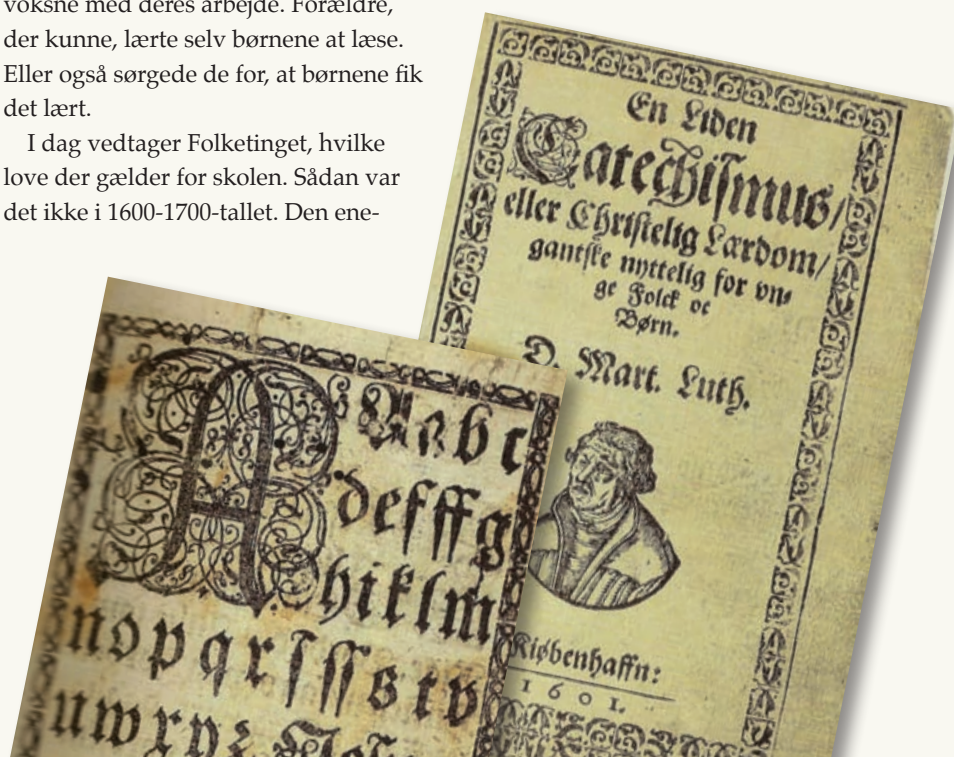 voksne med deres arbejde. Forældre,
der kunne, lærte selv børnene at læse.
Eller også sørgede de for, at børnene fik
det lært.
I dag vedtager Folketinget, hvilke
love der gælder for skolen. Sådan var
det ikke i 1600-1700-tallet. Den ene-
En Liden
Catechismus/
eller Christelig Lærdom/
gantske nyttelig for vn-
ge Folck oc
Børn.
D. Mart. Luth.
Kiøbenhaffn:
1601.
A Aabc
defffg
hiklm
nopqrſſſstv
uwxyz